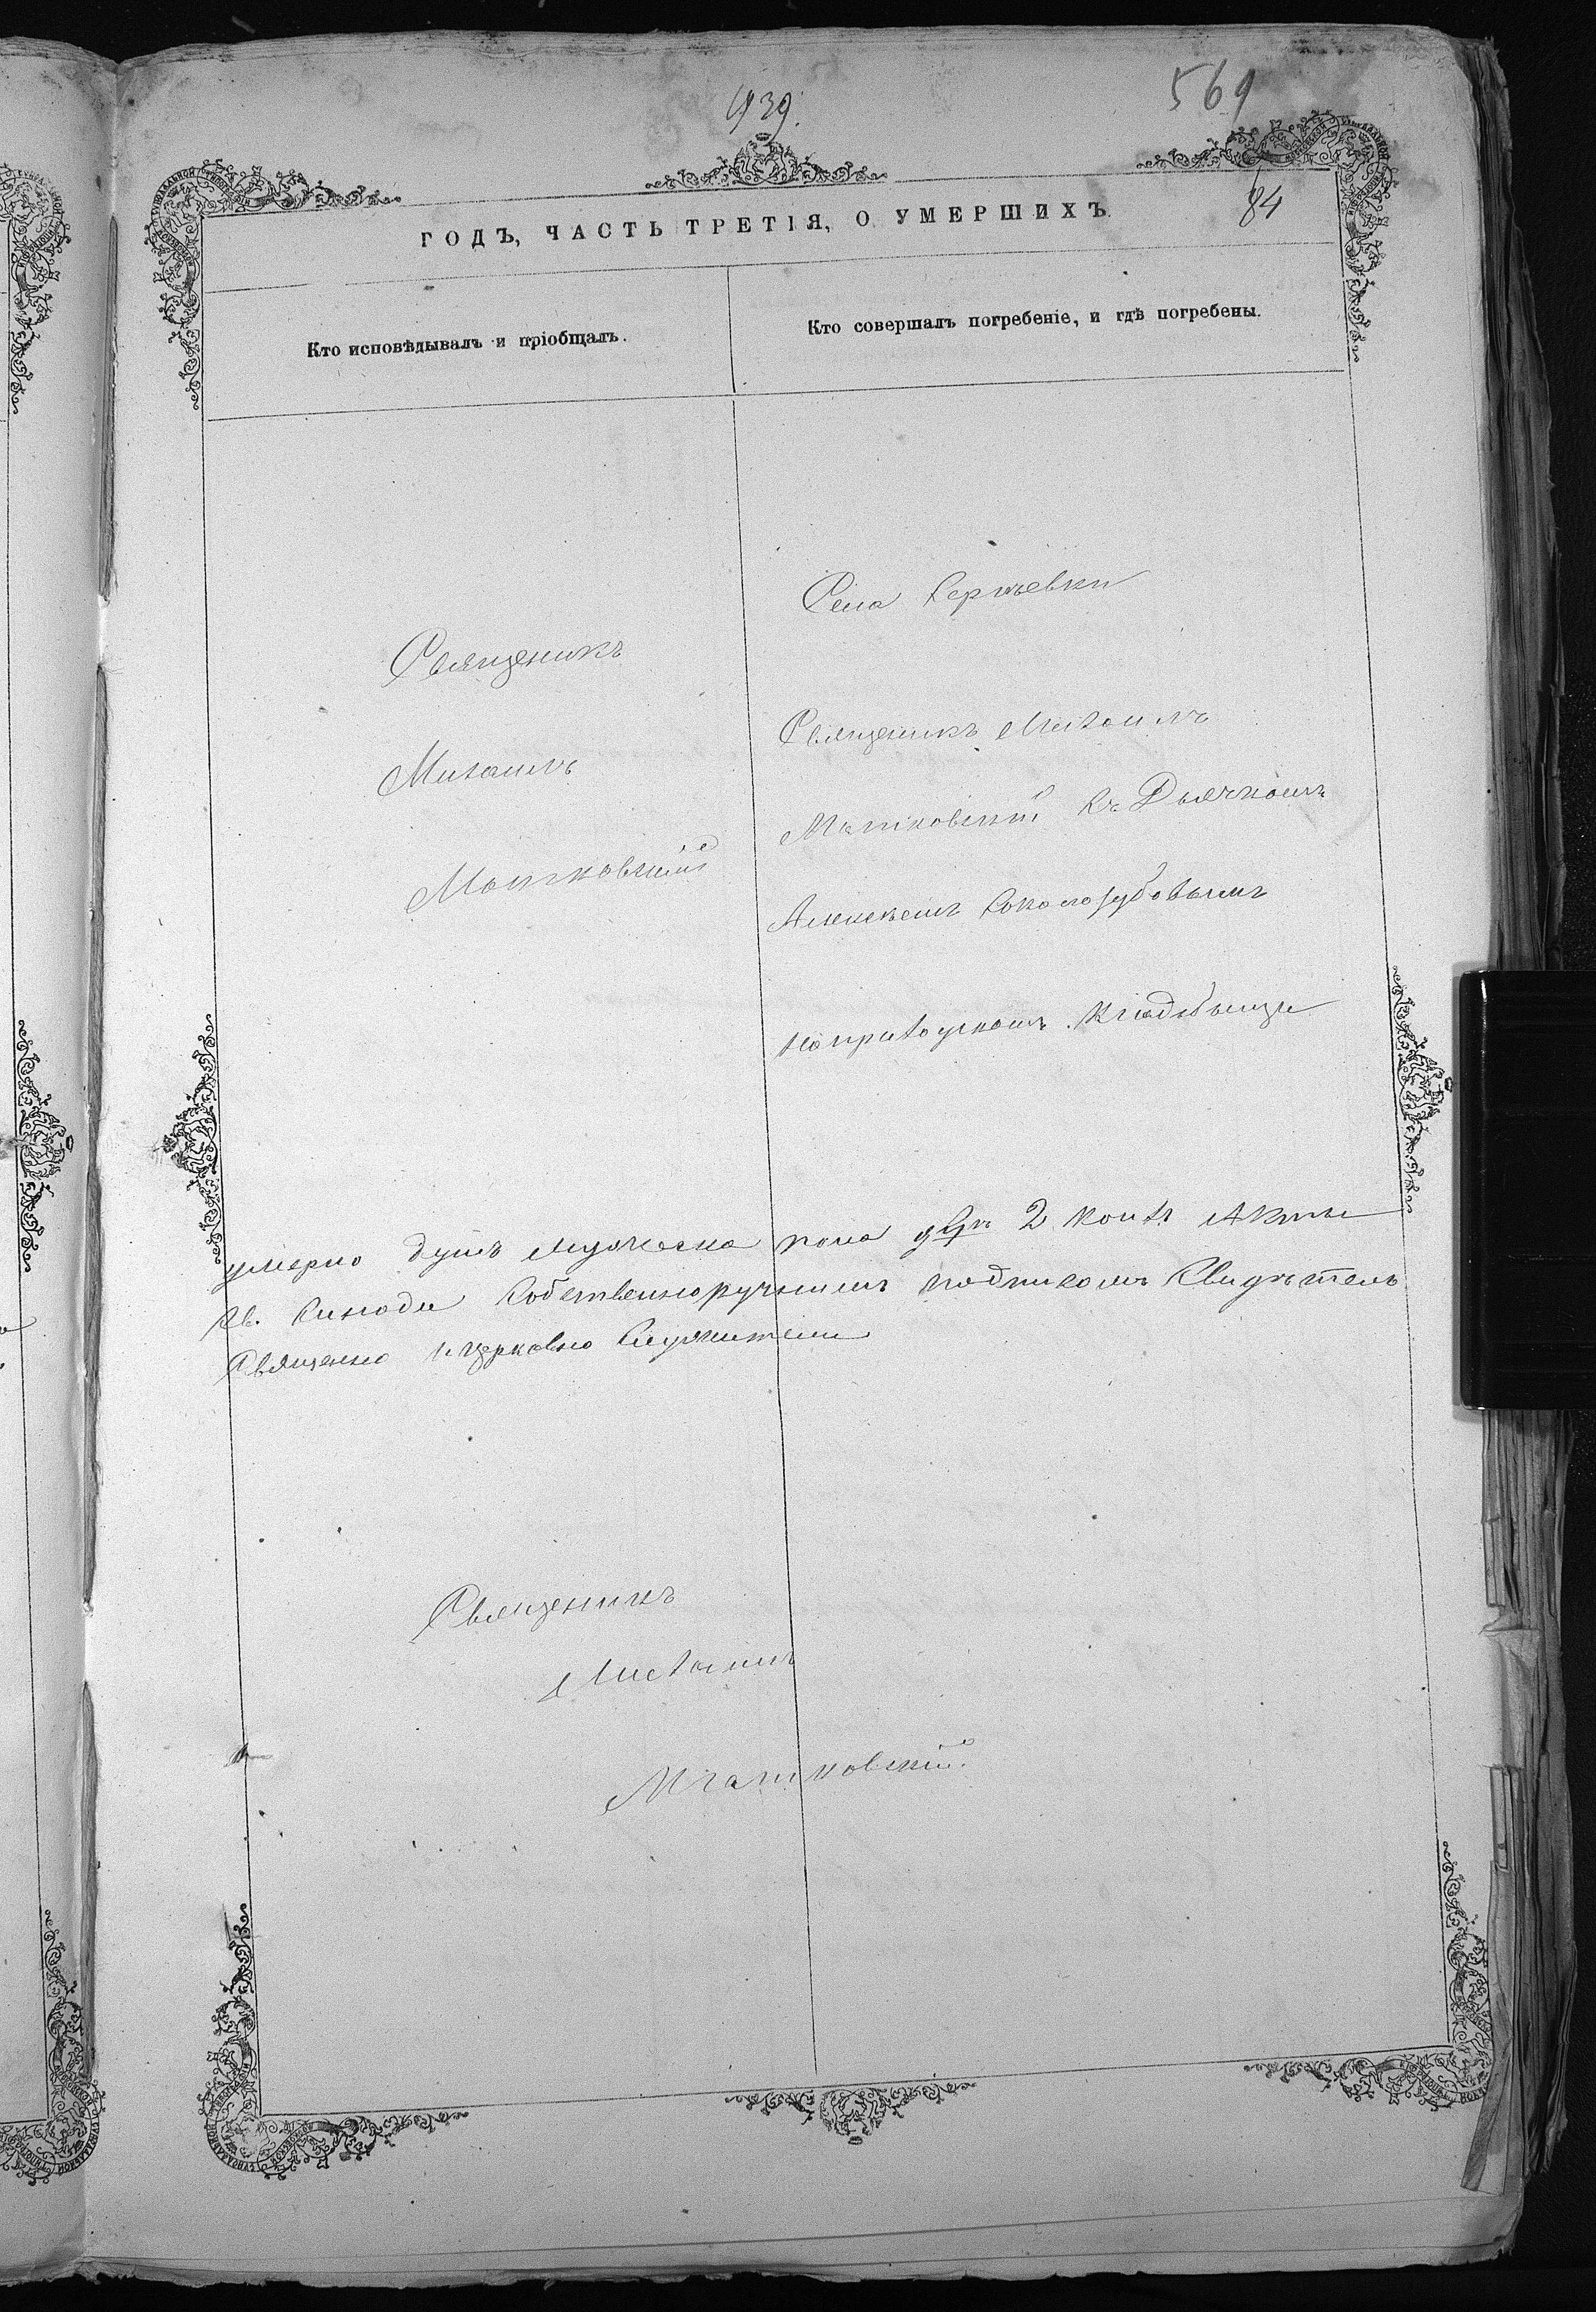 939.
569
84
ГОДЪ, ЧАСТЬ ТРЕТІЯ, О УМЕРШИХЪ.
Кто исповѣдывалъ и пріобщалъ.
Кто совершалъ погребеніе, и гдѣ погребены.
Священикъ
Михаилъ
Мотковскій
Села Сергѣевки
Священикъ Михаилъ
Матковскій Съ Дьячкомъ
Алексѣемъ Соколозубовымъ
на приходскомъ Кладбыще
умерло душъ мужеска пола 2 копія Акты
Св. Синоди Собственноручнымъ подписомъ Свидѣтель
Священно и церковно Служители
Священикъ
Михаилъ
Матковскій